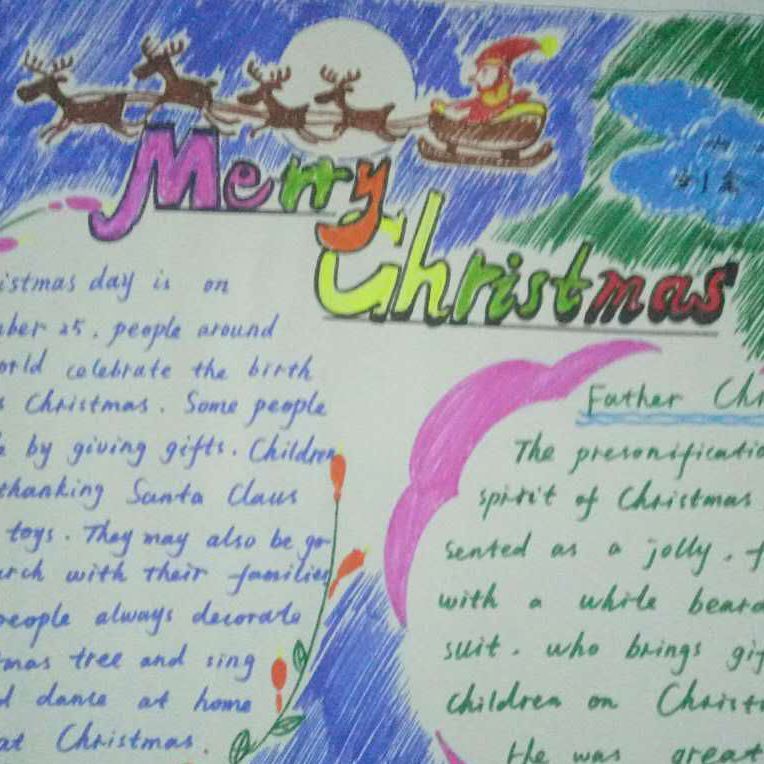 Merry
Christmas
istmas day is on
ber 25. people around
orld celebrate the birth
s Christmas. Some people
by giving gifts. Children
thanking Santa Claus
toys. They may also be go-
rch with their families
people always decorate
mas tree and sing
d dance at home
at Christmas.
Father Chr
The presonificatio
spirit of Christmas
sented as a jolly. f
with a while beard
suit. who brings gif
children on Christ
He was great